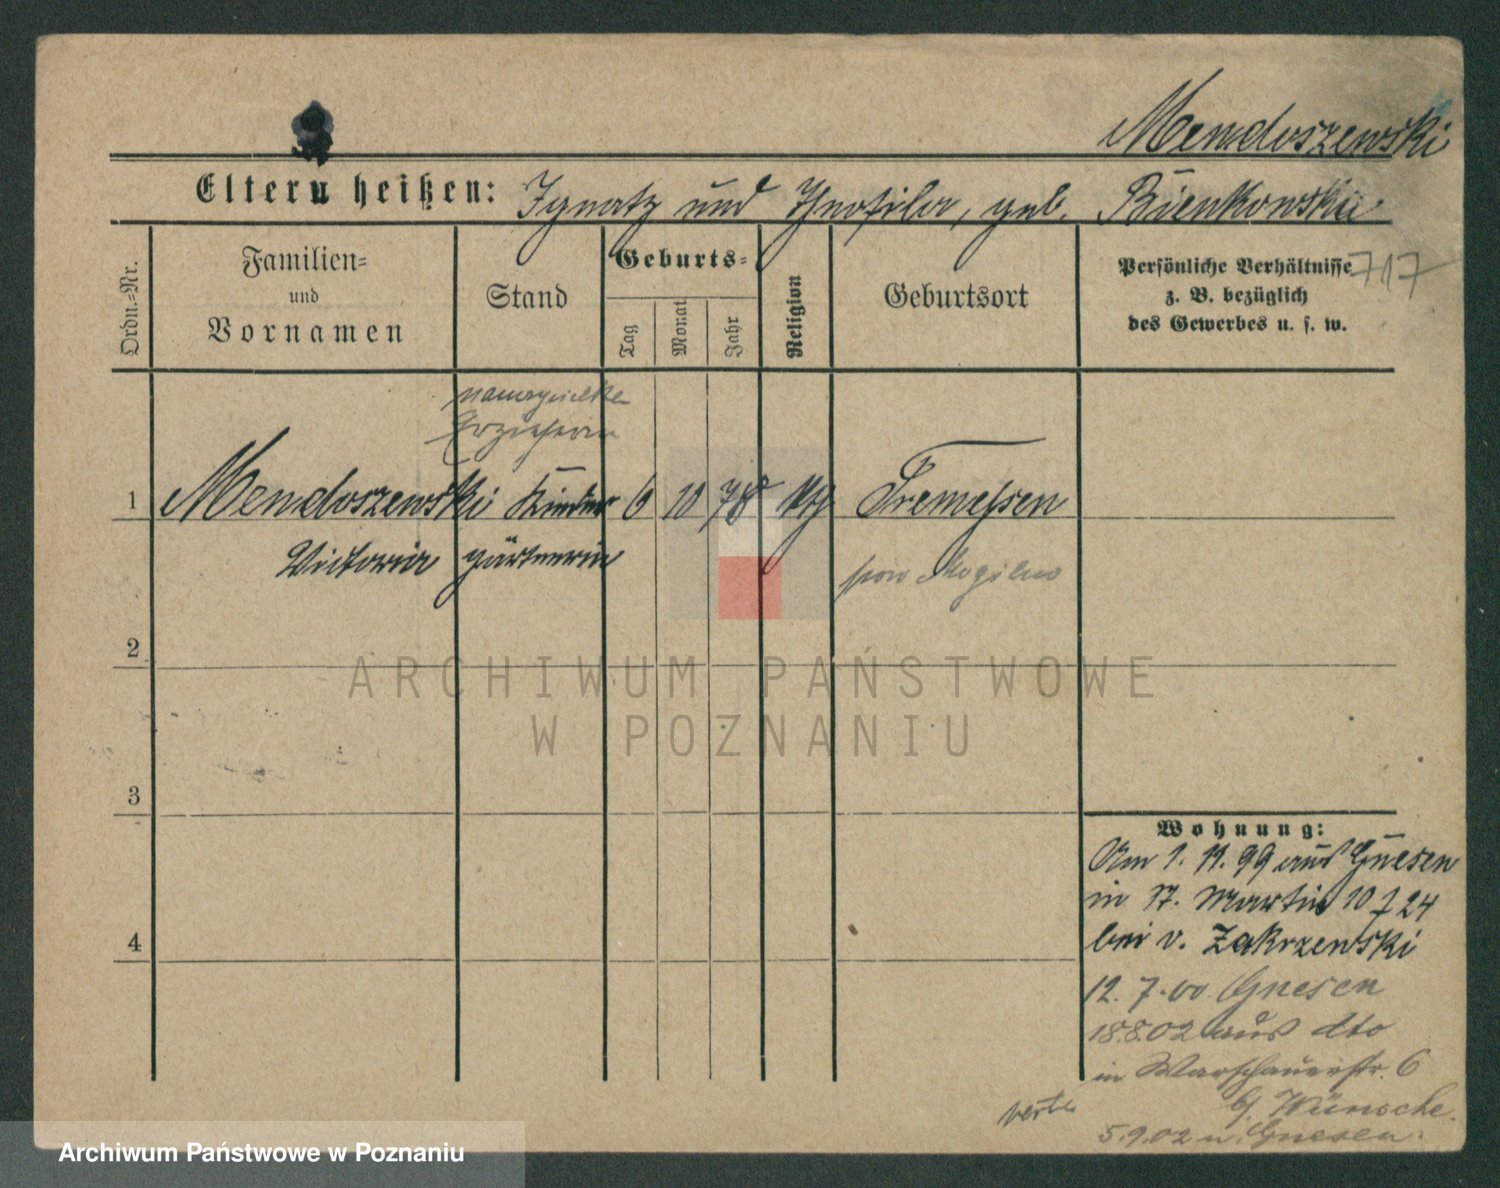 Mendoszewski
Eltern heißen: Ignatz und Theofila, geb. Bienkowska
Ordn.-Nr.
Familien-
und
Vornamen
Stand
Geburts-
Tag
Monat
Jahr
Religion
Geburtsort
Persönliche Verhältnisse
z. B. bezüglich
des Gewerbes u. s. w.
717
Erzieherin
1 Mendoszewski Kinder 6 10 78 Tremessen
Victoria gärtnerin
Mogilno
2
3
4
Wohnung:
Am 1. 11. 99 aus Gnesen
in St. Martin 10 I 24
bei v. Zakrzewski
12. 7. 00 Gnesen
18.8.02 aus dto
in Warschauerstr. 6
bj. Wünsche.
5.9.02 n. Gnesen.
verte
ARCHIWUM PAŃSTWOWE
W POZNANIU
Archiwum Państwowe w Poznaniu